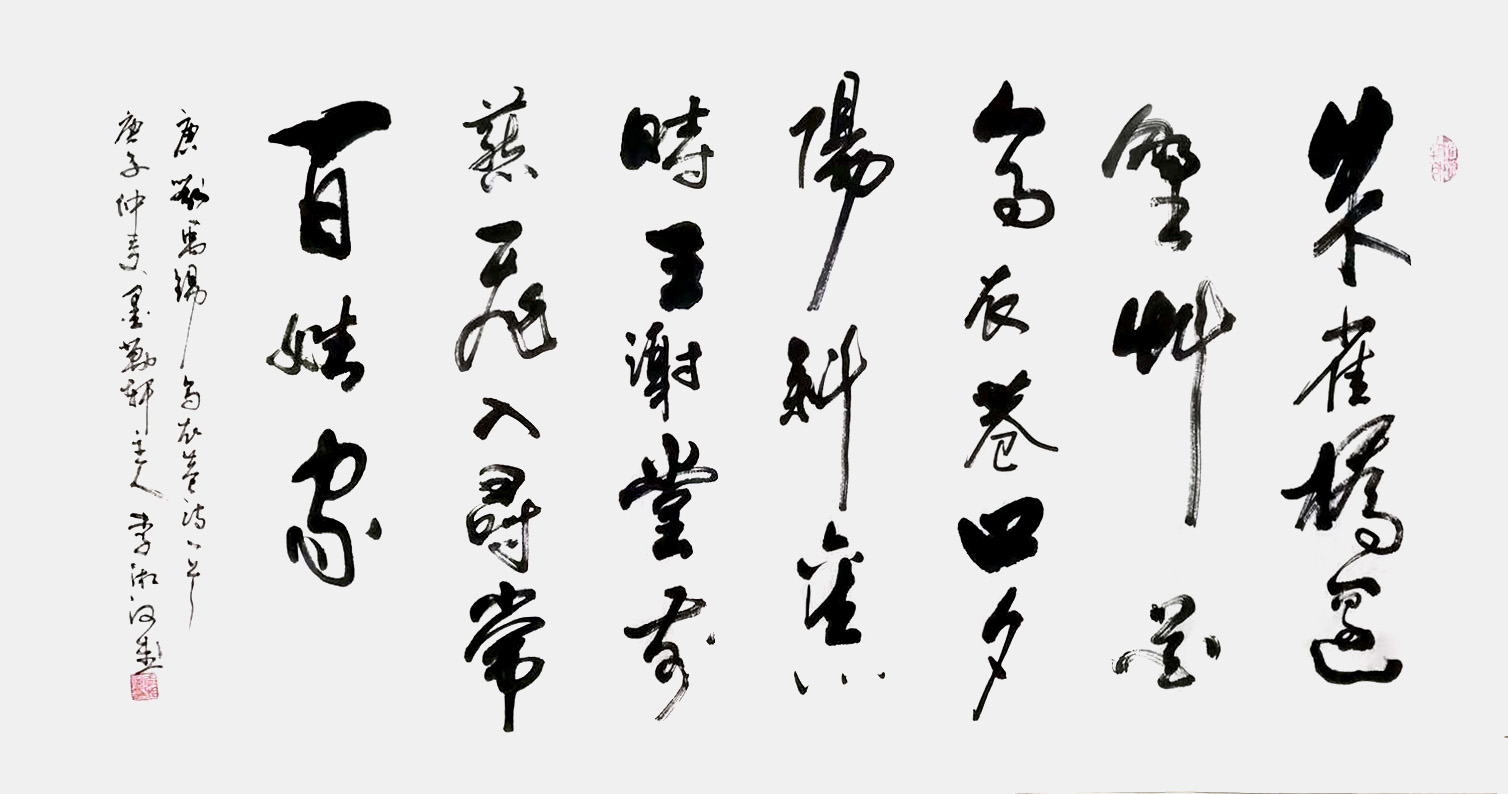 朱雀橋邊
野艸花
烏衣巷口夕
陽斜舊
時王謝堂前
燕飛入尋常
百姓家
唐劉禹錫烏衣巷詩一首
庚子仲夏墨勤軒主人李